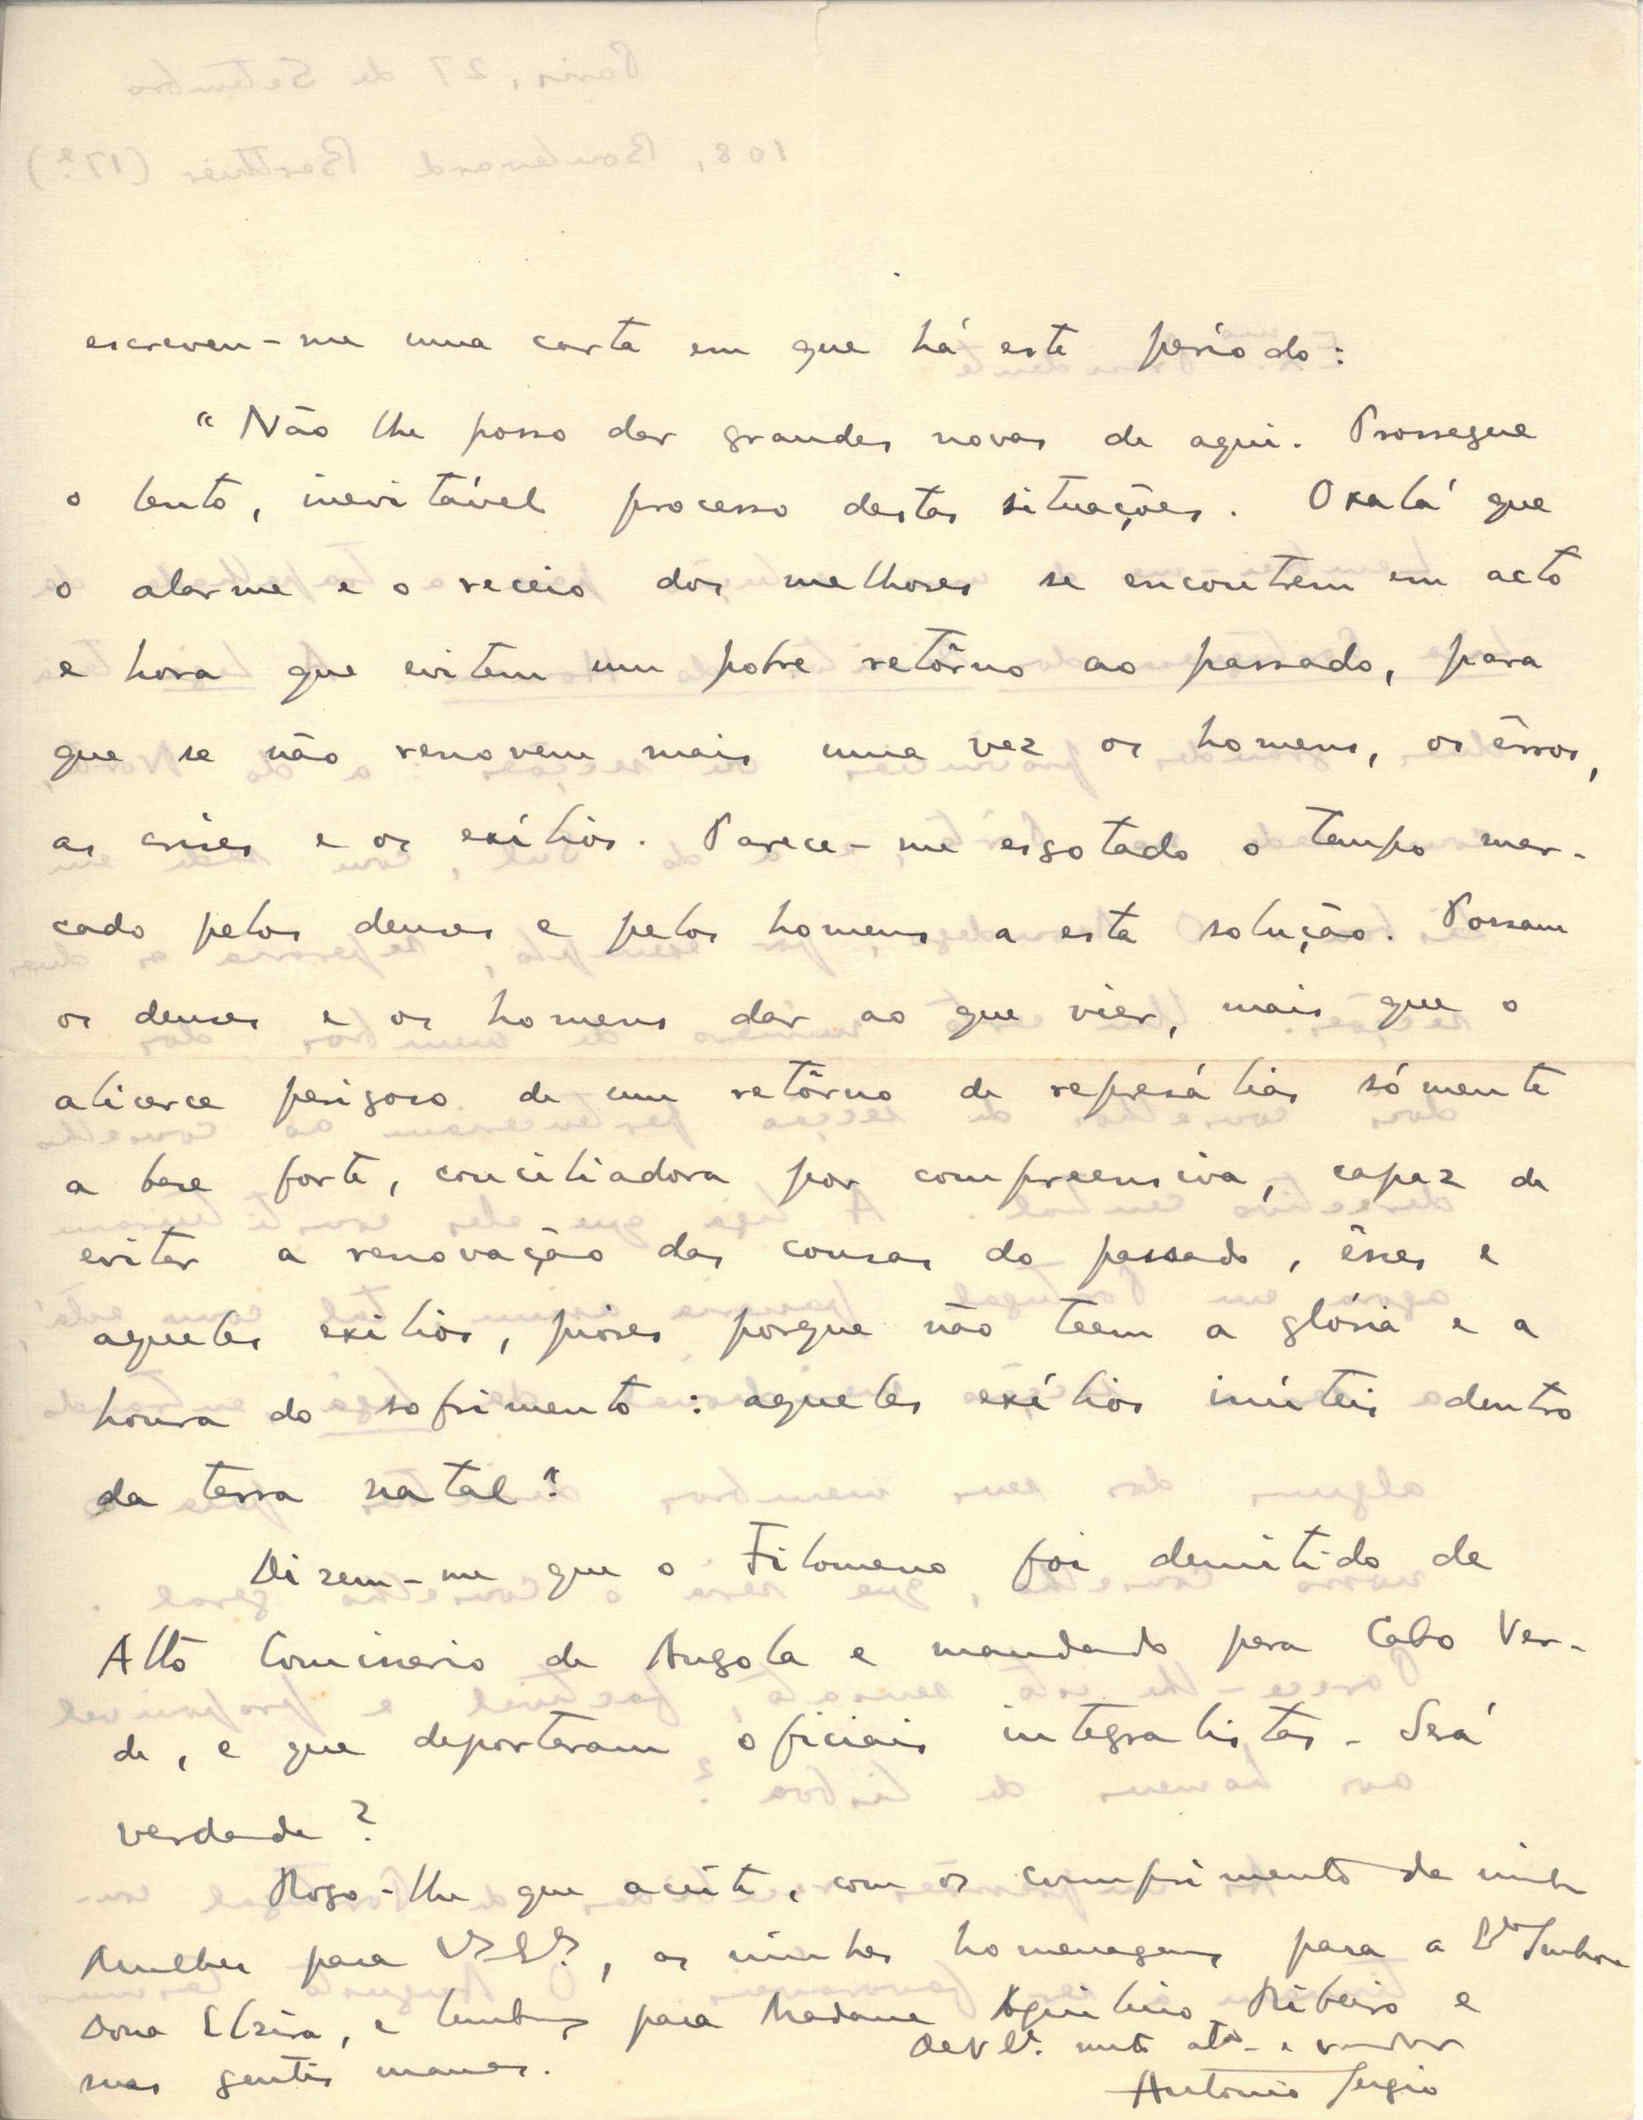 escreveu-me uma carta em que há este período:
"Não lhe posso dar grandes novas de aqui. Prossegue
o lento, inevitável processo destas situações. Oxalá que
o alarme e o receio dos melhores se encontrem em acto
e hora que evitem um pobre retôrno ao passado, para
que se não renovem mais uma vez os homens, os êrros,
as crises e os exílios. Parece-me esgotado o tempo mar-
cado pelos deuses e pelos homens a esta solução. Possam
os deuses e os homens dar ao que vier, mais que o
alicerce perigoso de um retôrno de represálias sómente
a base forte, conciliadora por compreensiva, capaz de
evitar a renovação das cousas do passado, êsses e
aqueles exílios, piores porque não teem a glória e a
honra do sofrimento: aqueles exílios inúteis dentro
da terra natal".
Dizem-me que o Filomeno foi demitido de
Alto Comissario de Angola e mandado para Cabo Ver-
de, e que deportaram oficiais integralistas. Será
verdade?
Rogo-lhe que aceite, com os cumprimentos de minha
Mulher para V.as E.as, as minhas homenagens para a Ex.ma Senhora
Dona Elzira, e também para Madame Aquilino Ribeiro e
suas gentis manas.
De V. E.a mto at.o e
António Sérgio